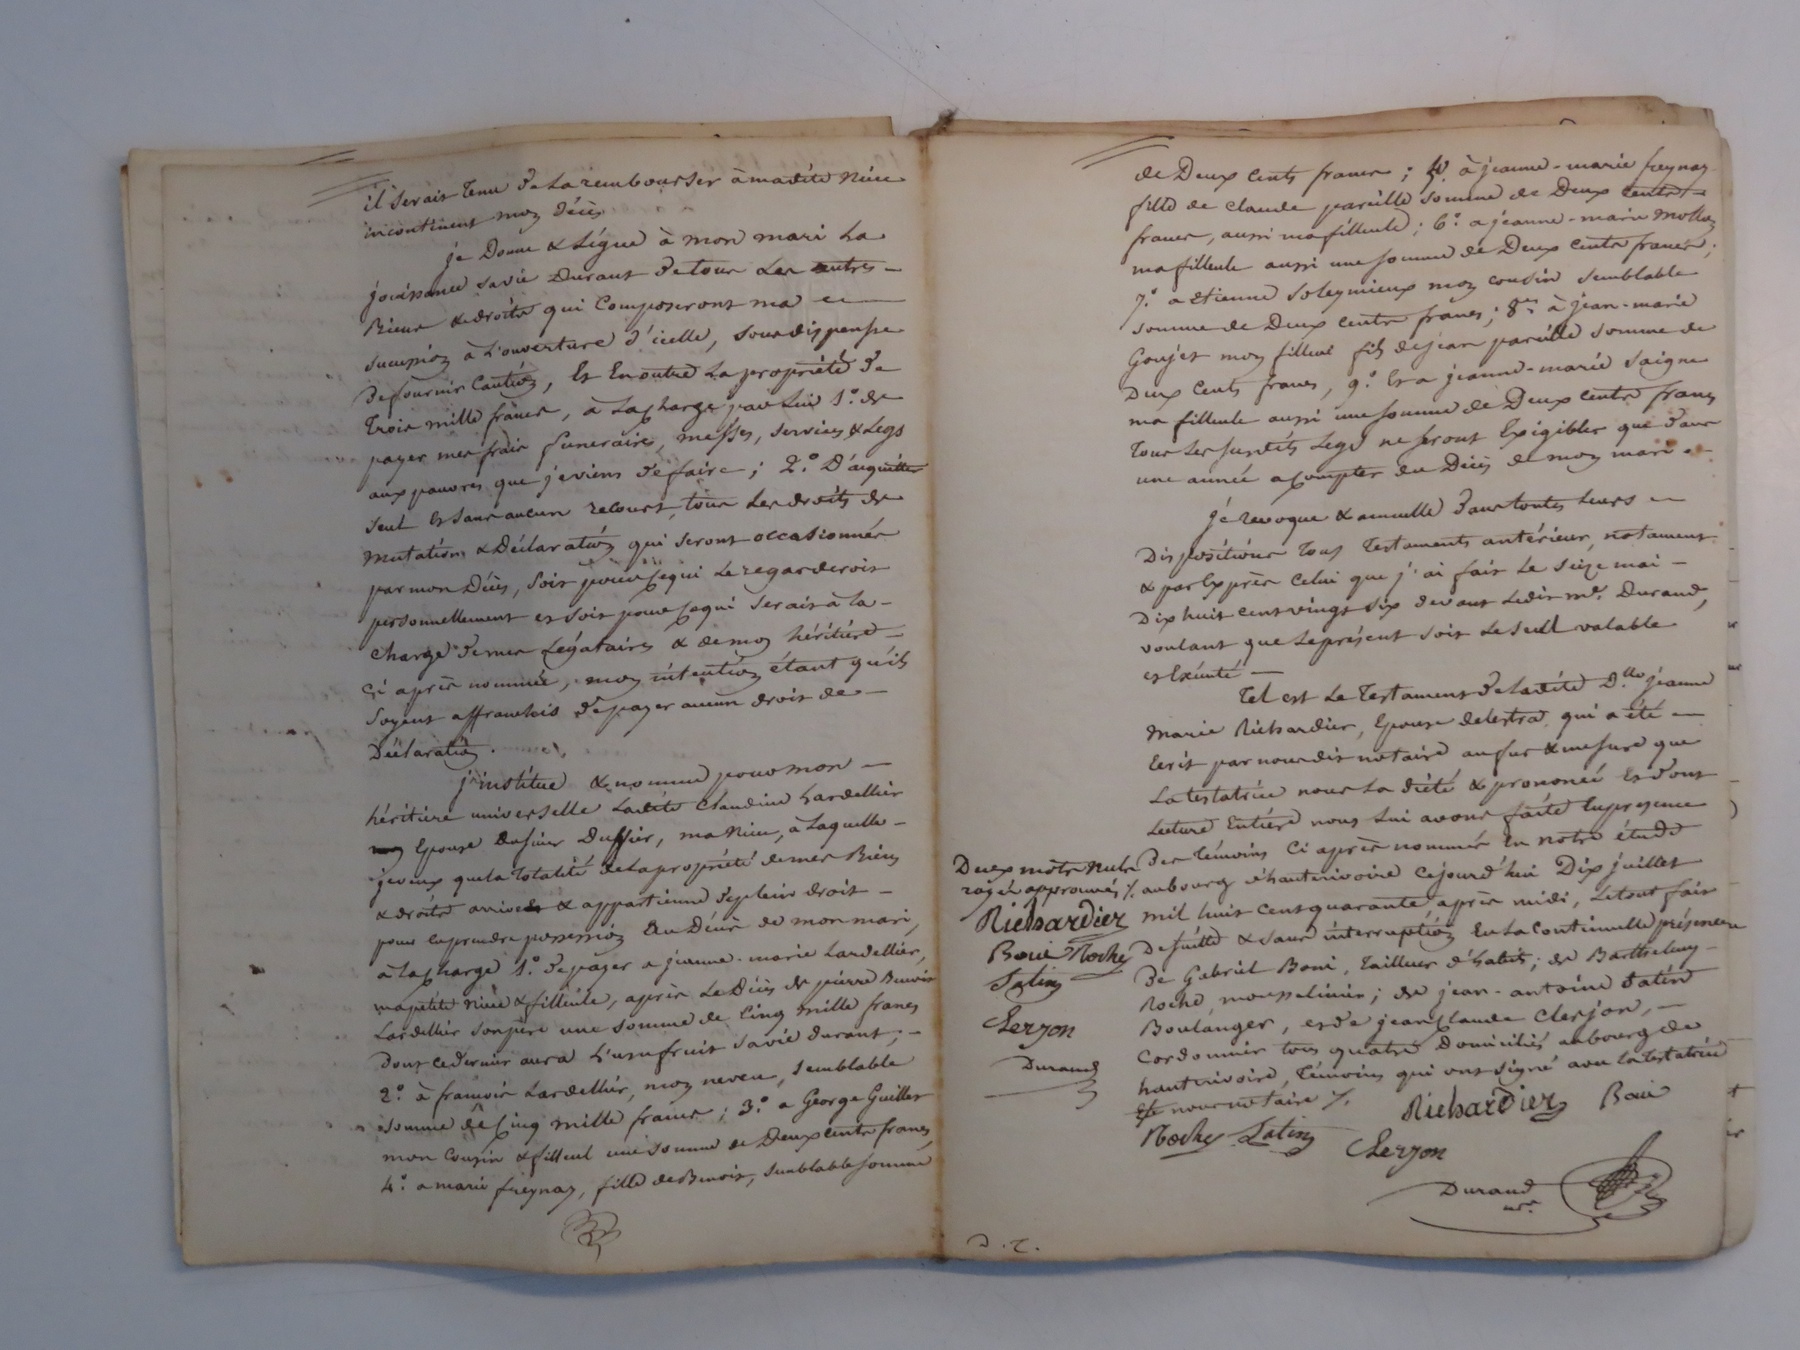 il serait tenu de la rembourser à madite niece
incontinent mon décès
je Donne & Lègue à mon mari La
jouissance sa vie Durant de tous Les autres
Biens & droits qui Composeront ma
succession à L'ouverture d'icelle, sous dispense
de fournir Caution, Et En outre La propriété de
Trois mille francs, à La charge par Lui 1.° de
payer mes frais funeraires, messes, services & Legs
aux pauvres que je viens de faire ; 2.° D'acquitter
seul Et sans aucun recours, tous Les droits de
mutations & Déclaration qui seront occasionnés
par mon Décès, soit pour ce qui Le regarderoit
personnellement et soit pour ce qui serait à La
charge de mes Légataires & de mon héritière
Ci après nommée, mon intention étant qu'ils
soyent affranchis de payer aucun droit de
Déclaration.
j'institue & nomme pour mon
héritière universelle Ladite Claudine Lardellier
Epouse du sieur Dussier, ma niece, à Laquelle
je veux que la totalité de la propriété de mes Biens
& droits arrive & appartienne de plein droit
pour en prendre possession Au Décès de mon mari,
à La charge 1.° de payer a jeanne-marie Lardellier,
ma petite niece & filleule, après Le Décès de pierre Benoit
Lardellier son père une somme de Cinq mille francs
Dont ce dernier aura L'usufruit sa vie durant ;
2.° à francois Lardellier, mon neveu, semblable
somme de Cinq mille francs ; 3.° a George Guillet
mon Cousin & filleul une somme de Deux cents francs
4.° a marie freynay, fille de Benoit, semblable somme
de Deux Cents francs ; 5.° à jeanne-marie freynay
fille de Claude pareille somme de Deux Cents
francs, aussi ma filleule ; 6.° a jeanne-marie
ma filleule aussi une somme de Deux Cents francs ;
7.° a etienne Soleymieux mon cousin semblable
somme de Deux Cents francs ; 8.° à jean-marie
Goujet mon filleul fils de jean pareille somme de
Deux Cents francs, 9.° Et a jeanne-marie Saigne
ma filleule aussi une somme de Deux Cents francs
Tous Les susdits Legs ne seront Exigibles que dans
une année a compter du Décès de mon mari.
je revoque & annulle dans toutes Leurs
Dispositions tous Testaments antérieurs, notament
& par Exprès Celui que j'ai fait Le seize mai
Dix huit cent vingt six devant Ledit me. Durand,
voulant que Le présent soit Le seul valable
et Exécuté
Tel est Le Testament de Ladite D.lle jeanne
Marie Richardier, Epouse delestra qui a été
Ecrit par nous dit notaire au fur & mesure que
La testatrice nous La dicté & prononcé Et dont
Lecture Entière nous Lui avons faite En presence
Des témoins Ci après nommés En notre étude
au bourg d'hauterivoire Cejourd'hui Dix juillet
mil huit cent quarante après midi, Le tout fait
De suitte & sans interruption En La Continuelle présence
De Gabriel Boui, tailleur d'habits ; de Barthelemy
Roche, mousselinier ; de jean-antoine Satin
Boulanger, et de jean Claude Clerjon,
Cordonnier tous quatre Domiciliés au bourg de
hauterivoire, témoins qui ont signé avec La testatrice
Et nous notaire /.
Deux mots nuls
rayés approuvés /.
Richardier
Boui Roche
Satin
Clerjon
Durand
Richardier Boui
Roche Satin
Clerjon
Durand
nre.
D. T.